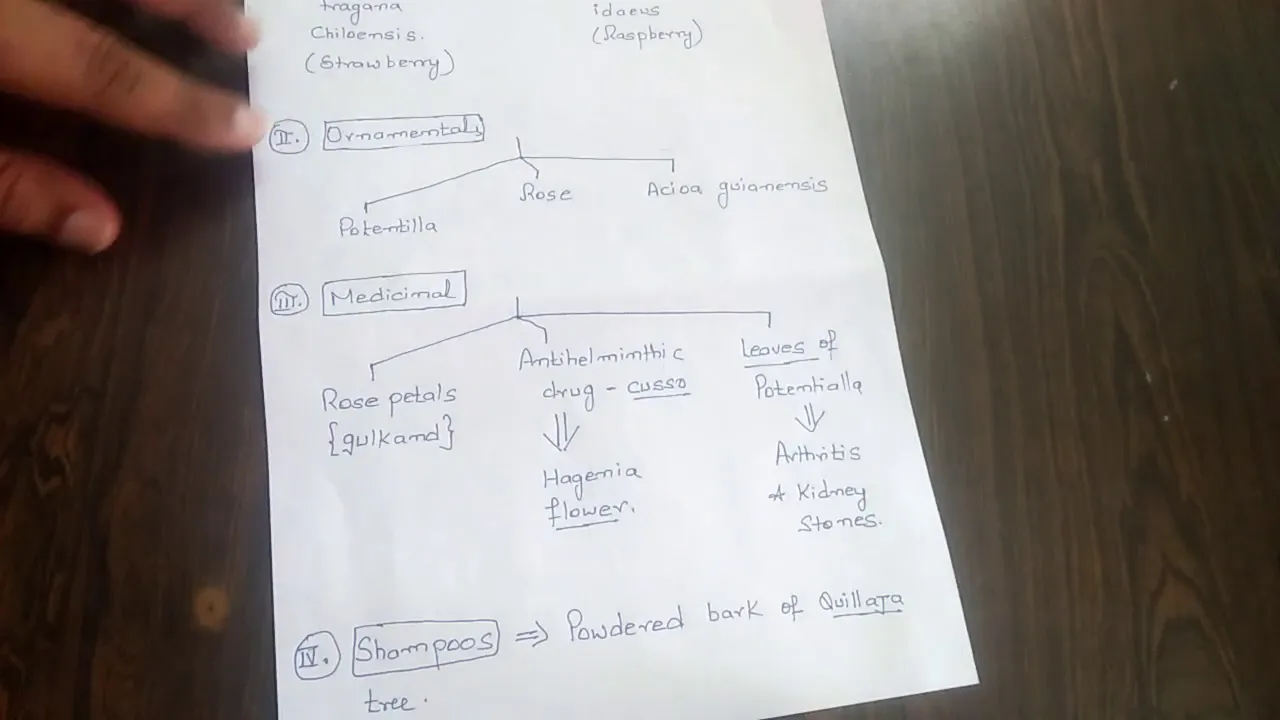 fragana
Chiloensis.
(Strawberry)
idaeus
(Raspberry)
II. Ornamentals
Potentilla
Rose
Acioa guianensis
III. Medicinal
Rose petals
{gulkand}
Antihelminthic
drug - cusso
⇓
Hagenia
flower.
Leaves of
Potentialla
⇓
Arthritis
& Kidney
Stones.
IV. Shampoos ⇒ Powdered bark of Quillaja
tree.